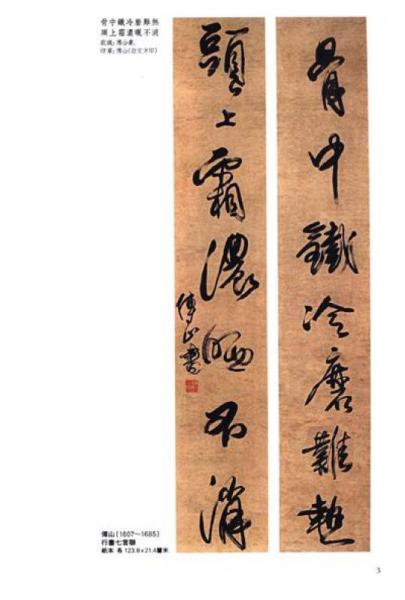 骨中鐵冷磨難熱
頭上霜濃曬不消
款識:傅山書。
印章:傅山(白文方印)
骨中鐵冷磨難熱
頭上霜濃晒不消
傅山書
傅山(1607～1685)
行書七言聯
紙本 各 123.9×21.4厘米
3